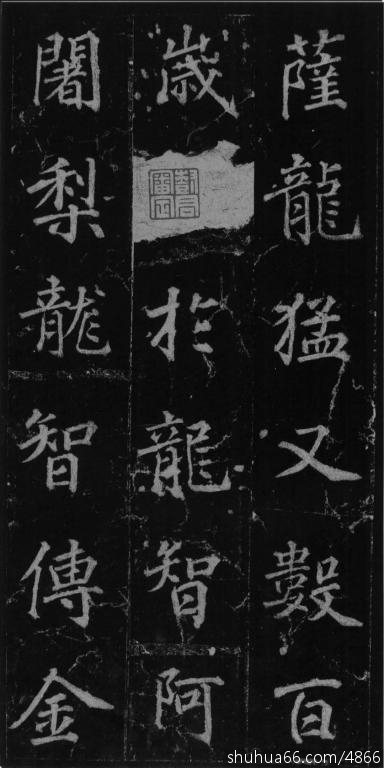 薩龍猛又數百
歲 於龍智阿
闍梨龍智傳金
shuhua66.com/4866